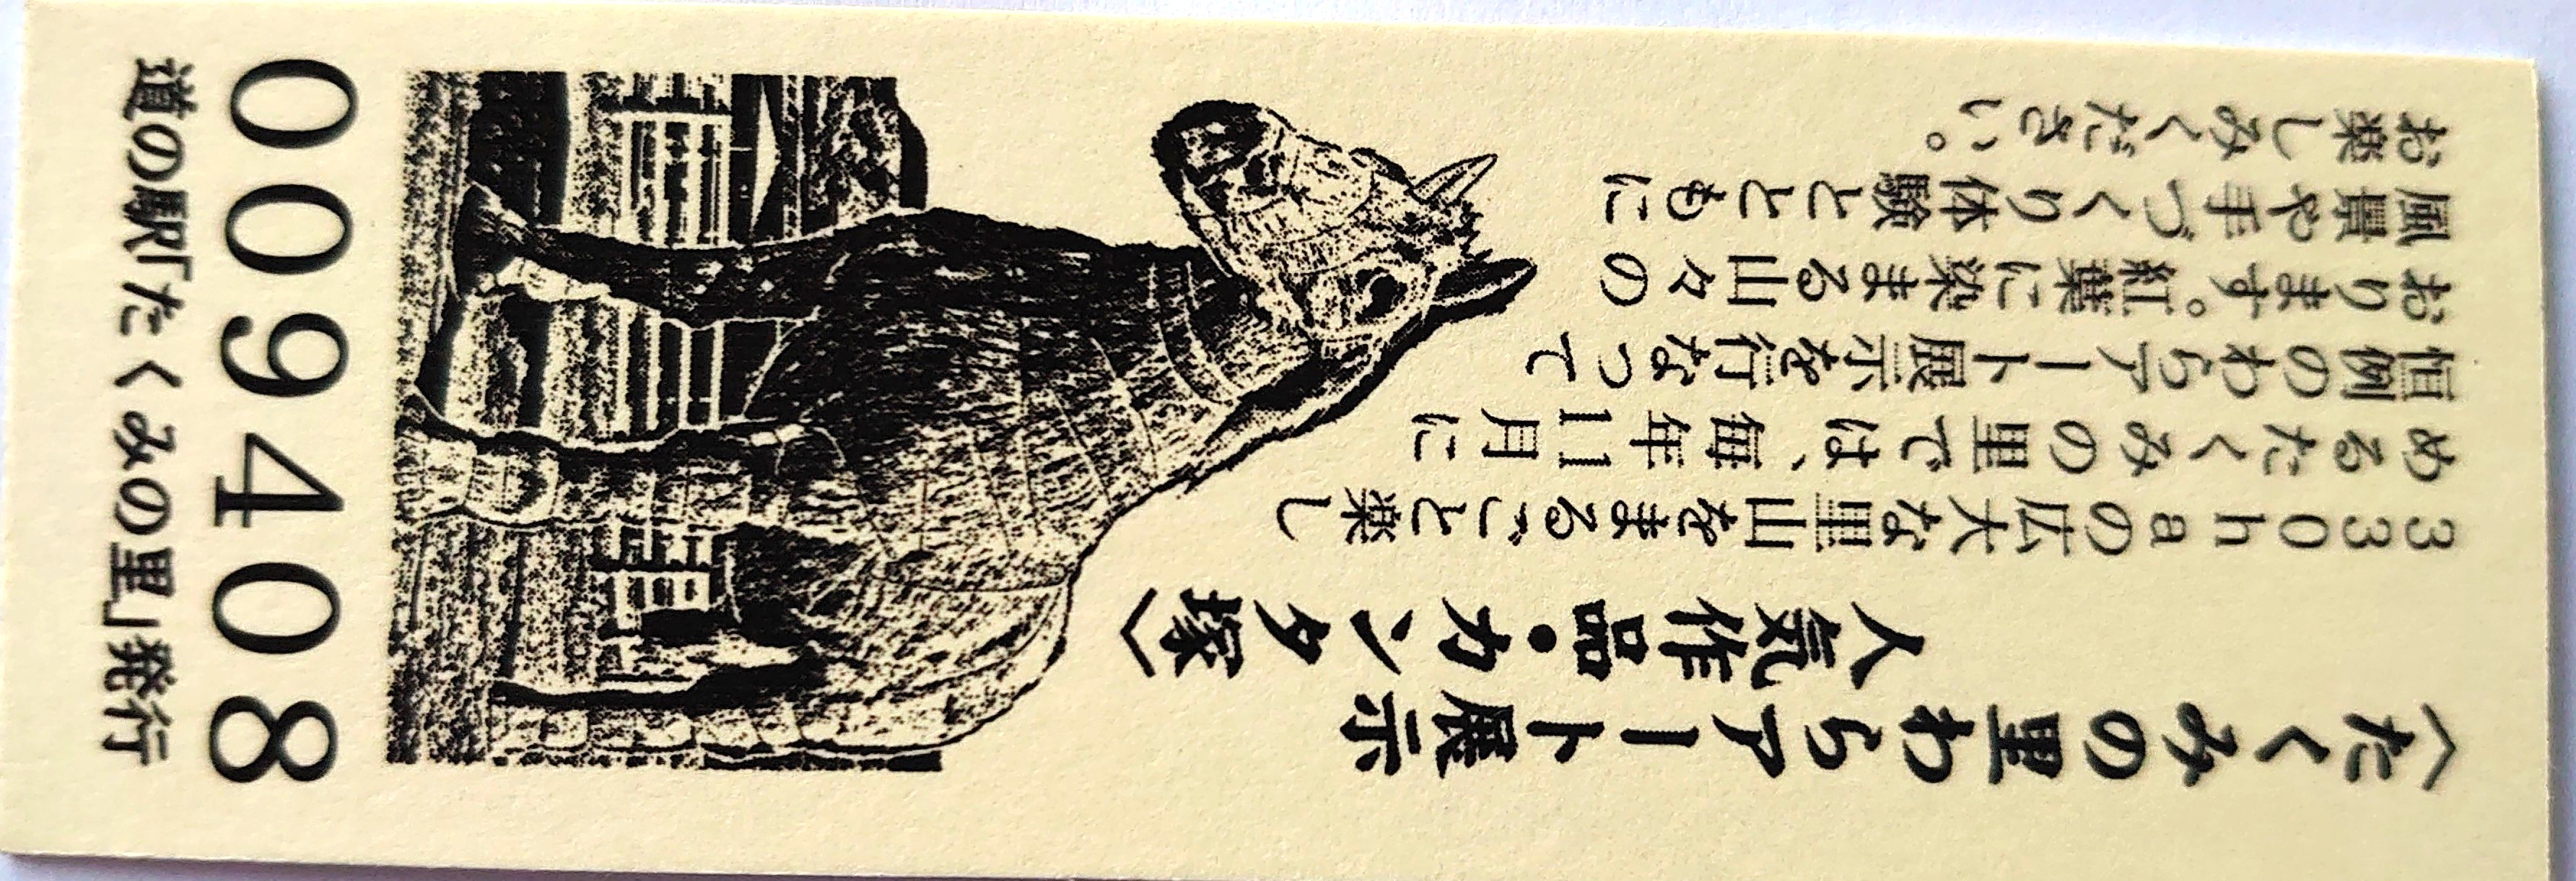 〈たくみの里わらアート展示
人気作品・カンタ塚〉
330haの広大な里山をまるごと楽し
めるたくみの里では、毎年11月に
恒例のわらアート展示を行なって
おります。紅葉に染まる山々の
風景や手づくり体験とともに
お楽しみください。
009408
道の駅「たくみの里」発行